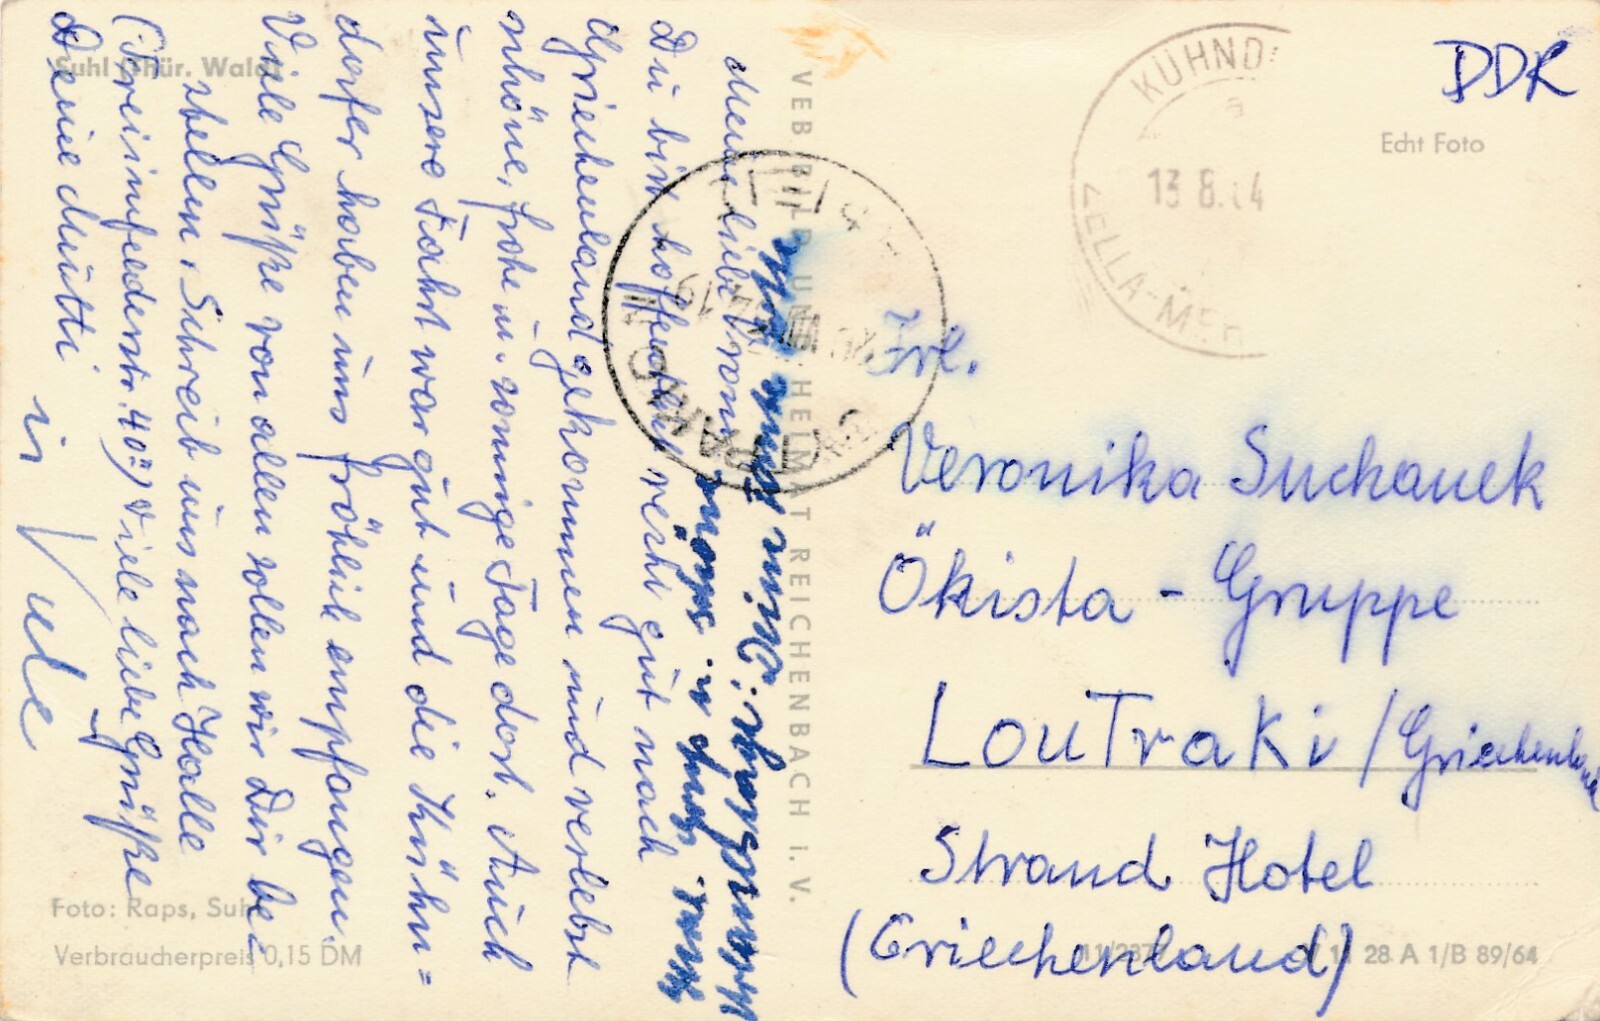 Suhl (Thür. Wald)
Meine liebe Vroni
Du bist hoffentlich recht gut nach
Griechenland gekommen und verlebst
schöne, frohe u. sonnige Tage dort. Auch
unsere Fahrt war gut und die Kühn=
dorfer haben uns fröhlich empfangen.
Viele Grüße von allen sollen wir Dir be-
stellen. Schreib uns nach Halle
(Freiimfelderstr. 40) Viele liebe Grüße
Deine Mutti
u.
Foto: Raps, Suhl
Verbraucherpreis 0,15 DM
VEB BILD UND HEIMAT REICHENBACH I. V.
KÜHNDO
13.8.64
ZELLA-ME
DDR
Echt Foto
Frl.
Veronika Suchanek
Ökista - Gruppe
LOUTraKi / Griechenland
Strand Hotel
(Griechenland)
28 A 1/B 89/64